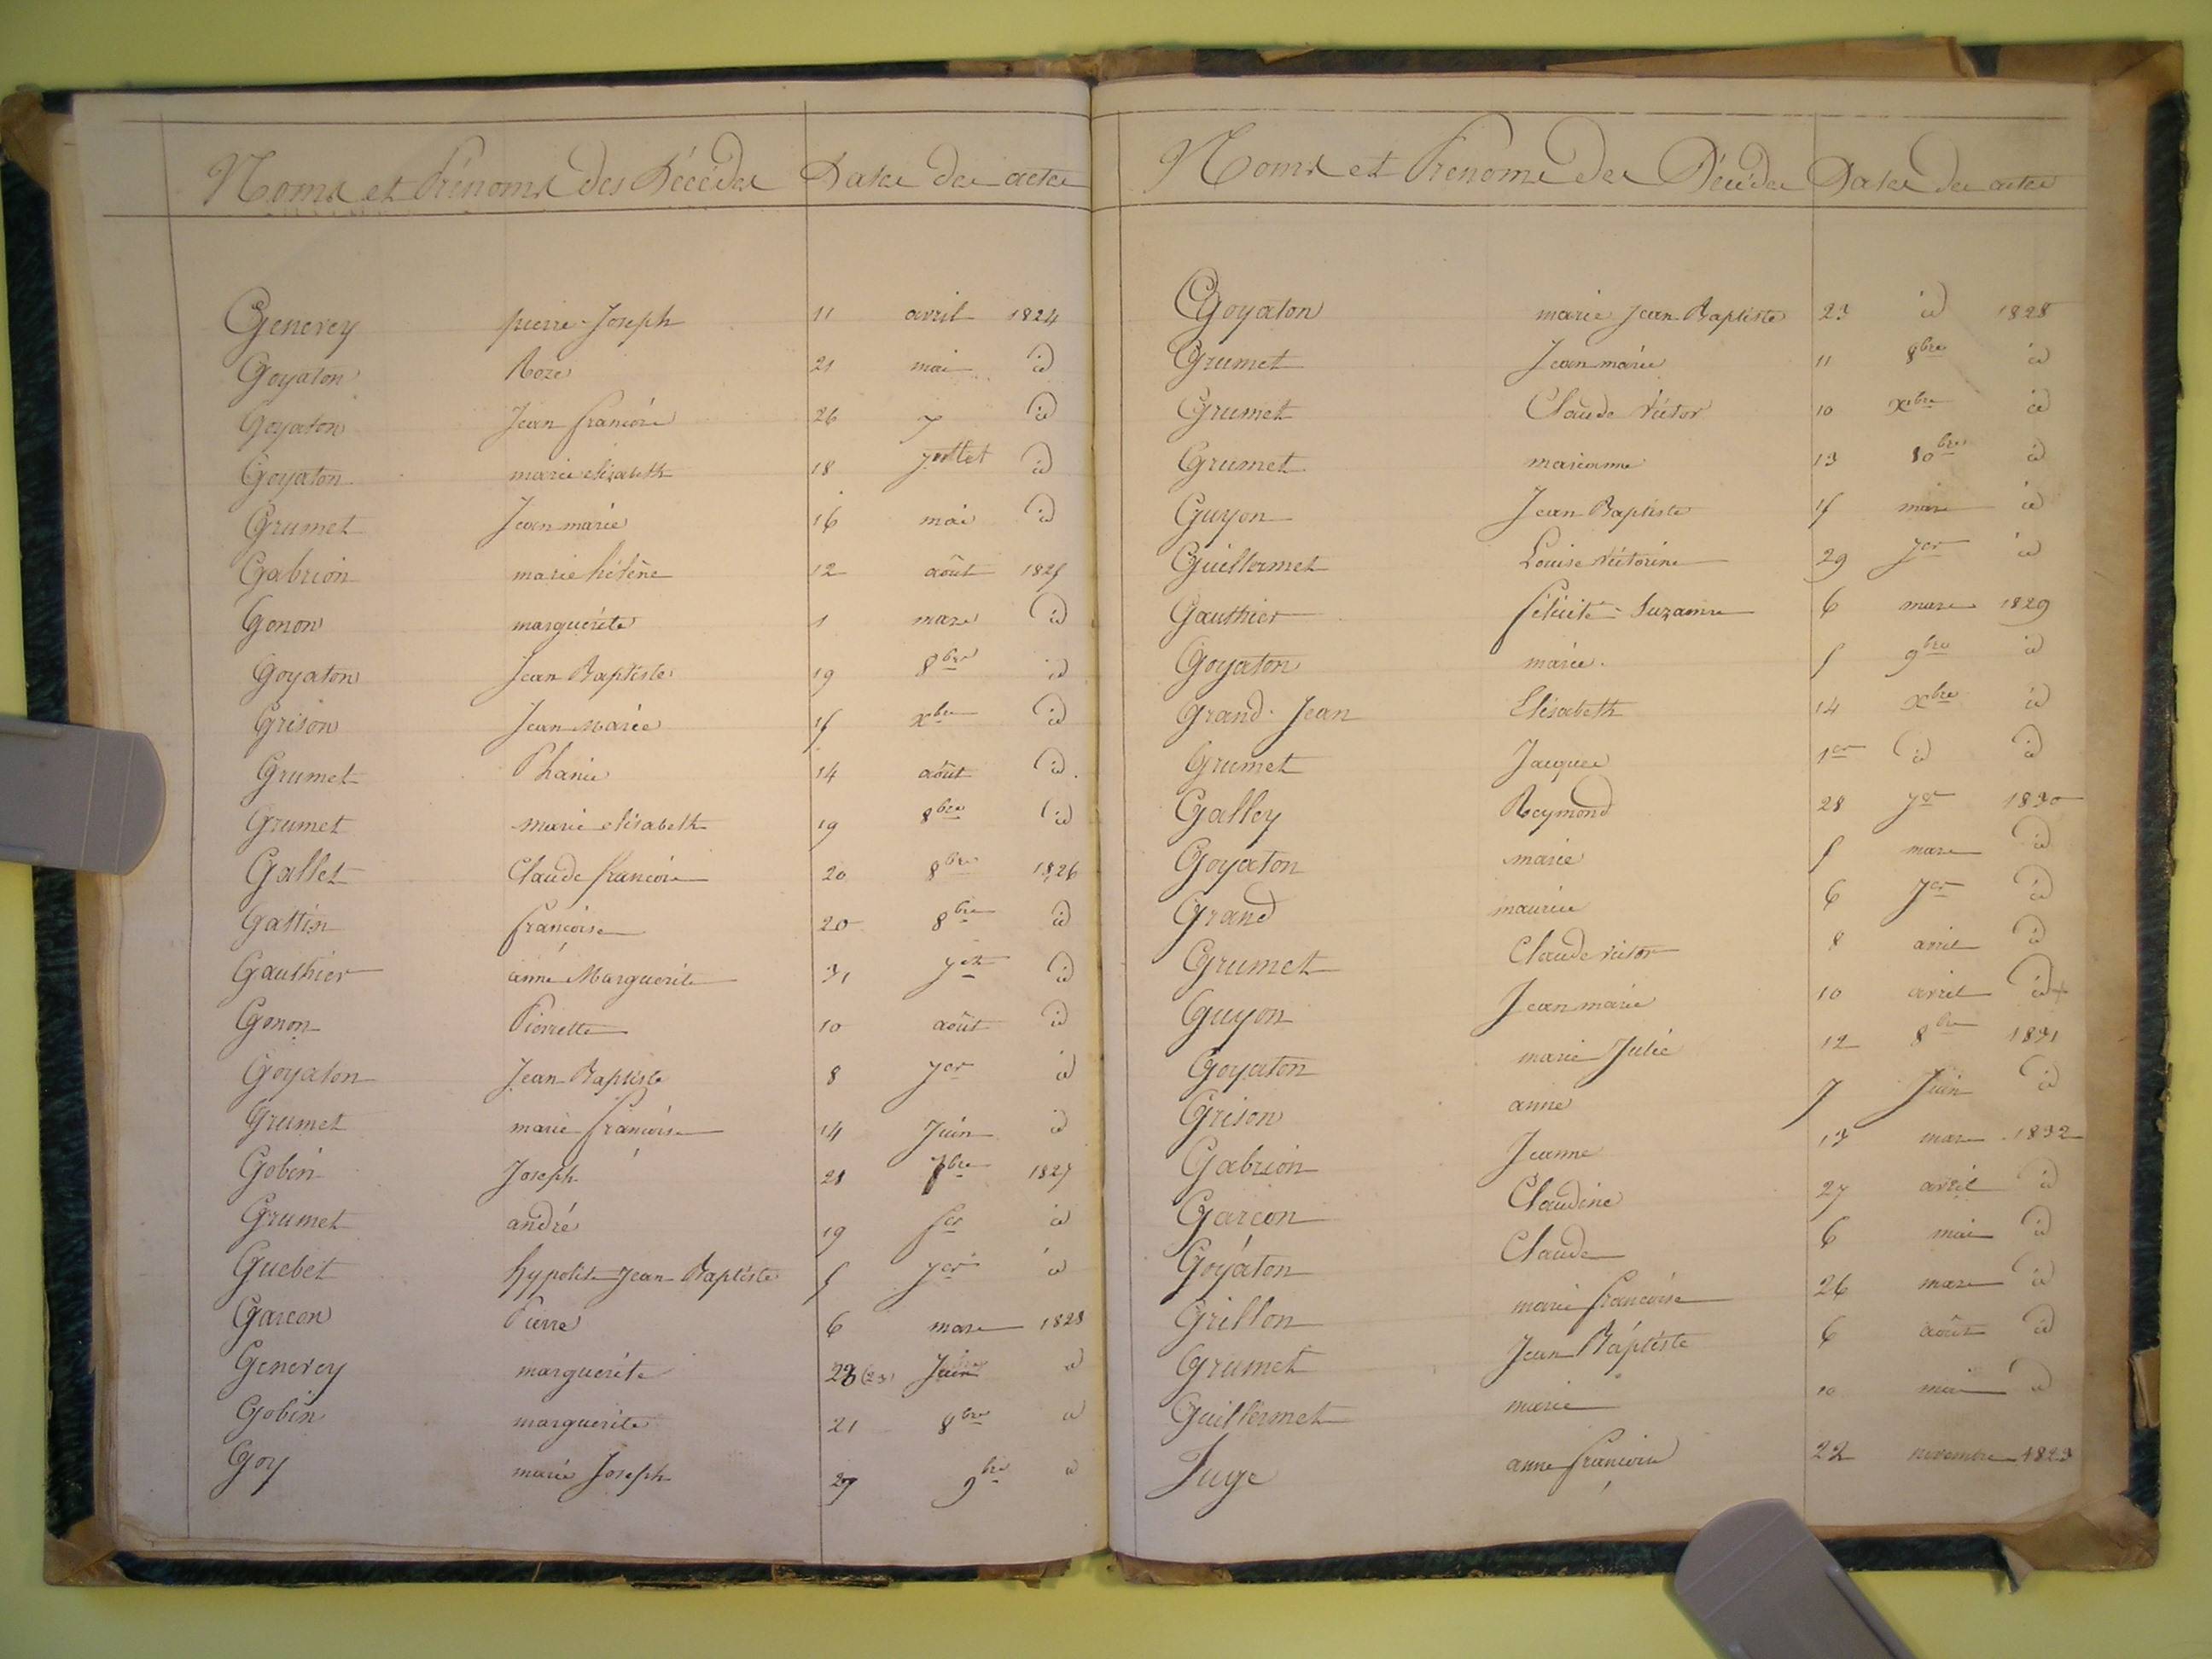 Noms et Prénoms des Décédés Dates des actes
Generey pierre-Joseph 11 avril 1824
Goyaton Roze 21 mai id
Goyaton Jean françois 26 id
Goyaton marie elisabeth 18 juillet id
Grumet Jean marie 16 mai id
Gabrion marie hélène 12 août 1825
Gonon marguérite 1 mars id
Goyaton Jean Baptiste 19 8bre id
Grison Jean Marie 15 xbre id
Grumet Phanie 14 août id
Grumet marie elisabeth 19 8bre id
Gallet Claude françois 20 8bre 1826
Gattin françoise 20 8bre id
Gauthier anne Marguerite 31 id
Gonon Pierrette 10 août id
Goyaton Jean Baptiste 8 jer id
Grumet marie françoise 14 Juin id
Gobin Joseph 21 1827
Grumet andré 19 fer id
Guebet hypolite Jean Baptiste 5 jer id
Garcon Pierre 6 mars 1828
Generey marguérite 28 (23) Juin id
Gobin marguerite 21 8bre id
Goy marie Joseph 27 9bre id
Noms et Prenoms des Décédés Dates des actes
Goyaton marie Jean Baptiste 23 id 1828
Grumet Jean marie 11 8bre id
Grumet Claude Victor 10 xbre id
Grumet marianne 13 10bre id
Guyon Jean Baptiste 15 mars id
Guillermet Louise Victorine 29 jer id
Gauthier félicité-Suzanne 6 mars 1829
Goyaton marie 5 9bre id
Grand-Jean Elisabeth 14 xbre id
Grumet Jacques 1er id id
Galley Reymond 28 jer 1830
Goyaton marie 5 mars id
Grand maurice 6 jer id
Grumet Claude victor 8 avril id
Guyon Jean marie 10 avril id
Goyaton marie Julie 12 8bre 1831
Grison anne 7 Juin id
Gabrion Jeanne 13 mars 1832
Garcon Claudine 27 avril id
Goyaton Claude 6 mai id
Grillon marie françoise 26 mars id
Grumet Jean Baptiste 6 août id
Guillermet marie 10 mai id
Juge anne françoise 22 novembre 1823